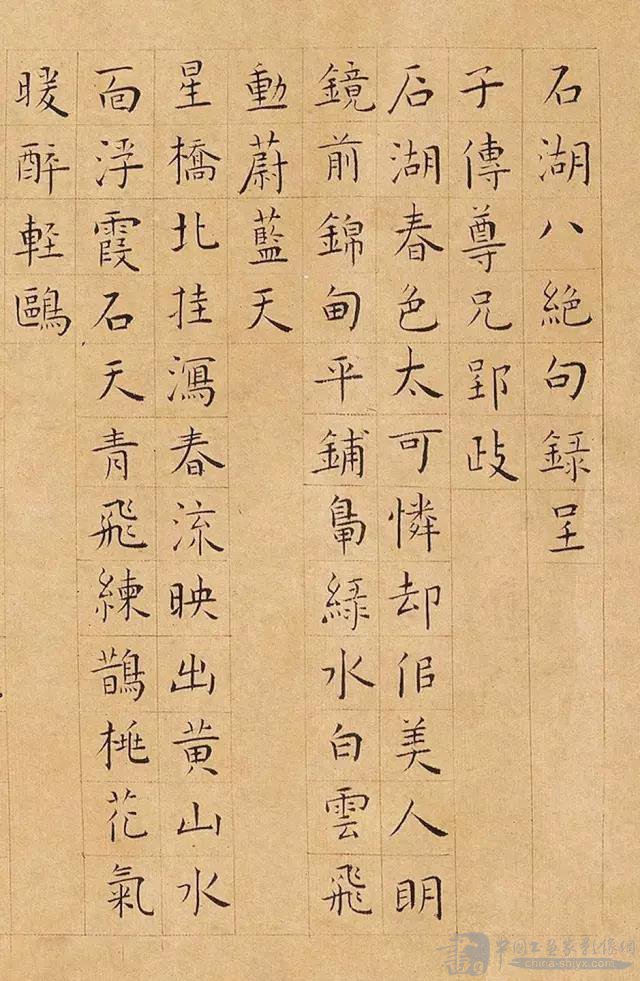 石湖八絶句録呈
子傳尊兄郢政
石湖春色太可憐却佀美人眀
鏡前錦甸平鋪鳧緑水白雲飛
動蔚藍天
星橋北挂瀉春流映出黄山水
面浮霞石天青飛練鵲桃花氣
暖醉軽鷗
china-shjyx.com